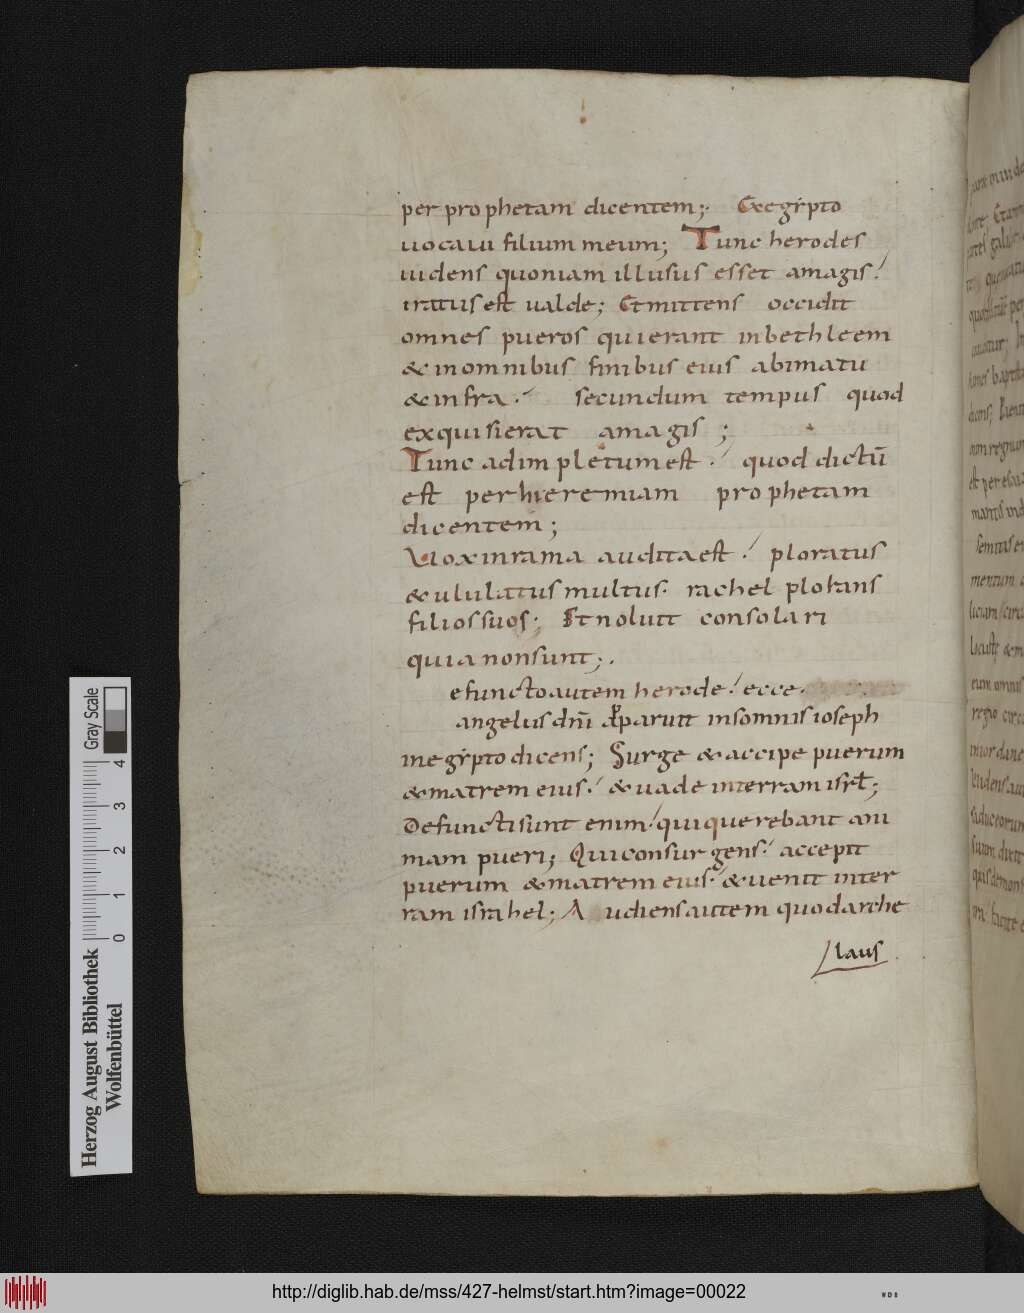 per prophetam dicentem; Exegipto
uocaui filium meum; Tunc herodes
uidens quoniam illusus esset amagis.
iratus est ualde; Et mittens occidit
omnes pueros qui erant inbethleem
& inomnibus finibus eius abimatu
& infra. secundum tempus quod
exquisierat amagis;
Tunc adimpletum est. quod dictū
est perhieremiam prophetam
dicentem;
Uox inrama audita est. ploratus
& ululatus multus. rachel plorans
filios suos; Et noluit consolari
quia non sunt;.
efuncto autem herode. ecce.
angelus dn̄i apparuit insomnis ioseph
inegipto dicens; Surge & accipe puerum
& matrem eius. & uade interram isrł;
Defuncti sunt enim. qui querebant ani
mam pueri; Qui consurgens. accepit
puerum & matrem eius. & uenit inter
ram israhel; Audiens autem quod arche
laus
Gray Scale
4
3
2
1
0
Herzog August Bibliothek
Wolfenbüttel
http://diglib.hab.de/mss/427-helmst/start.htm?image=00022